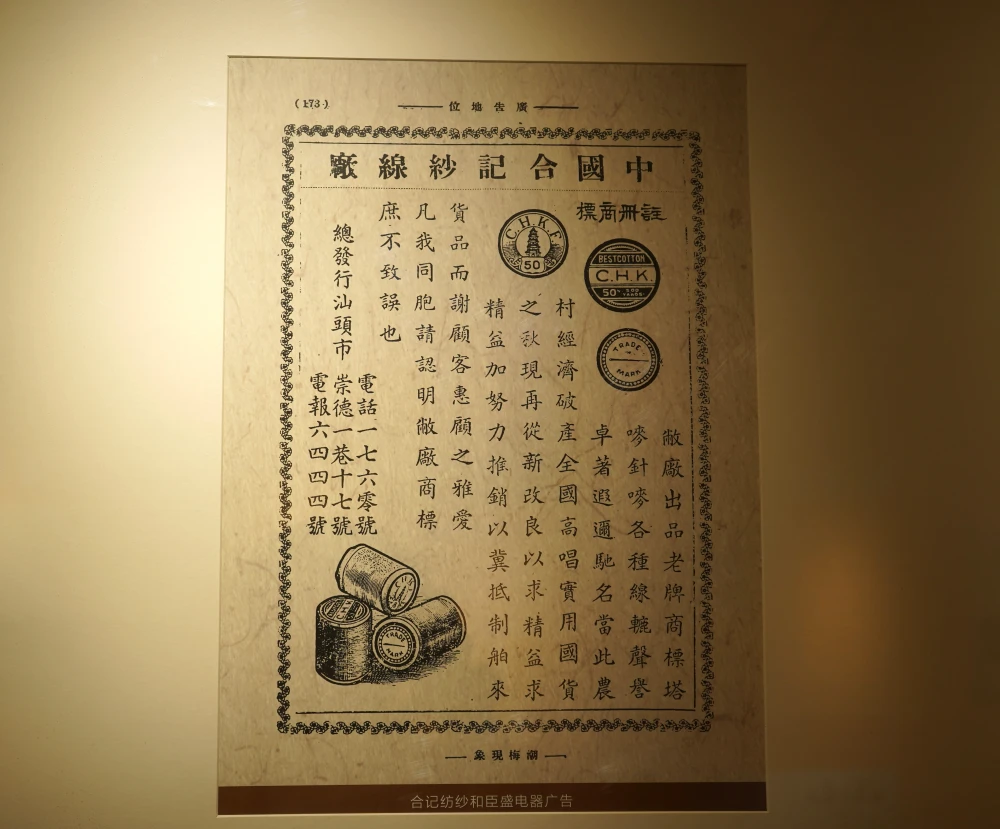 (173)
廣告地位
中國合記紗線廠
註冊商標
C.H.K.F
50
BESTCOTTON
C.H.K.
50
YARDS
TRADE
MARK
敝廠出品老牌商標塔
嘜針嘜各種線轆聲譽
卓著遐邇馳名當此農
村經濟破產全國高唱實用國貨
之秋現再從新改良以求精益求
精益加努力推銷以冀抵制舶來
貨品而謝顧客惠顧之雅愛
凡我同胞請認明敝廠商標
庶不致誤也
總發行汕頭市
電話一七六零號
崇德一巷十七號
電報六四四四號
C.H.K
TRADE
MARK
潮梅現象
合记纺纱和臣盛电器广告